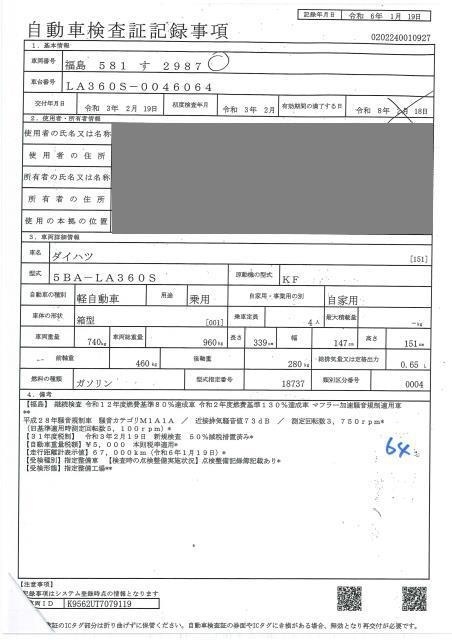 記録年月日 令和 6年 1月 19日
自動車検査証記録事項
0202240010927
1．基本情報
車両番号 福島 581 す 2987
車台番号 LA360S-0046064
交付年月日 令和 3年 2月 19日 初度検査年月 令和 3年 2月 有効期間の満了する日 令和 8年 2月 18日
2．使用者・所有者情報
使用者の氏名又は名称
使用者の住所
所有者の氏名又は名称
所有者の住所
使用の本拠の位置
3．車両詳細情報
車名 ダイハツ [151]
型式 5BA-LA360S 原動機の型式 KF
自動車の種別 軽自動車 用途 乗用 自家用・事業用の別 自家用
車体の形状 箱型 [001] 乗車定員 4人 最大積載量 -kg
車両重量 740kg 車両総重量 960kg 長さ 339cm 幅 147cm 高さ 151cm
前軸重 460kg 後軸重 280kg 総排気量又は定格出力 0.65 L
燃料の種類 ガソリン 型式指定番号 18737 類別区分番号 0004
4．備考
【福島】 継続検査 令和12年度燃費基準80%達成車 令和2年度燃費基準130%達成車 マフラー加速騒音規制適用車
**
平成28年騒音規制車 騒音カテゴリM1A1A ／ 近接排気騒音値73dB ／ 測定回転数3，750rpm*
（旧基準適用時測定回転数5，100rpm）*
【31年度税制】 令和3年2月19日 新規検査 50%減措置済み*
【自動車重量税額】¥5，000 本則税率適用*
【走行距離計表示値】67，000km（令和6年1月19日）*
【受検種別】指定整備車 【検査時の点検整備実施状況】点検整備記録簿記載あり*
【受検形態】指定整備工場**
64
【注意事項】
記録事項はシステム登録時点の情報となります
車両ID K9562UT7079119
証のICタグ部分は折り曲げずに保管ください。自動車検査証の券面やICタグに各損がある場合、無効となり再交付が必要です。